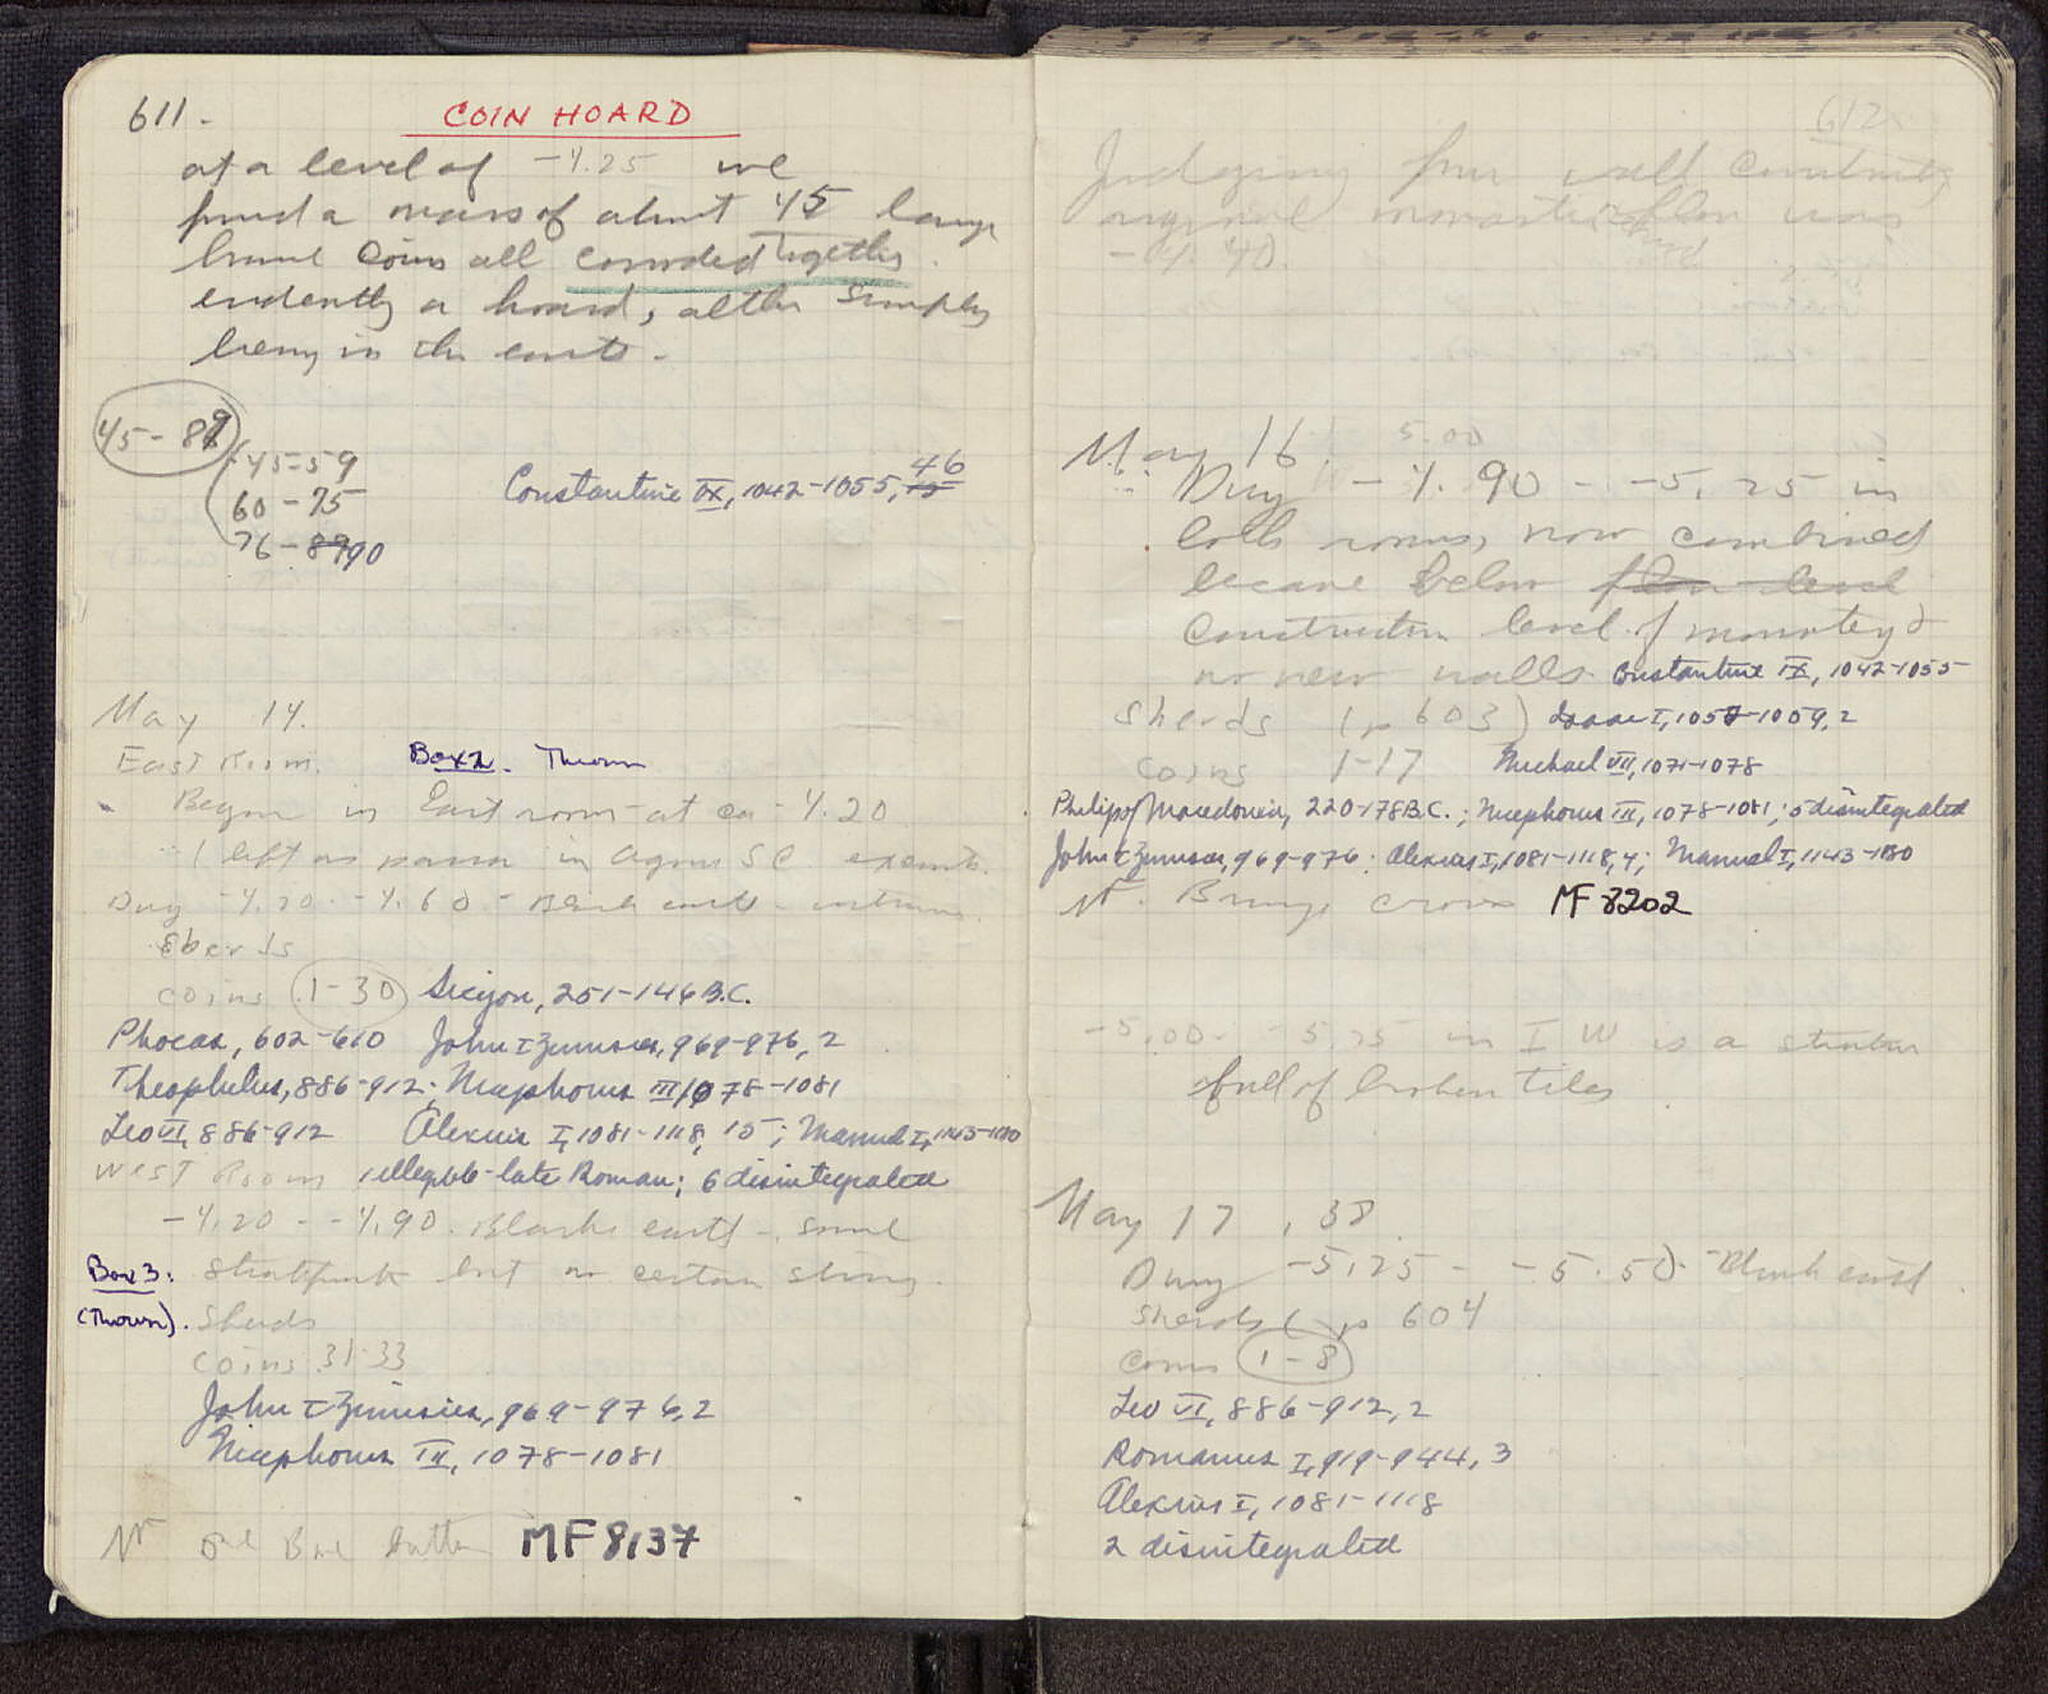 611.
COIN HOARD
at a level of -4.25 we
found a mass of about 45 large
bronze coins all corroded together.
evidently a hoard, altho simply
lying in the earth.
45-89
45-59
60-75
76-8990
Constantine IX, 1042-1055, 45 46
May 14.
East Room. Box 2. Thrown
Began in East room at ca -4.20
(left as in Agora SC
Dug -4.20 - -4.60 - Black earth
Sherds
coins 1-30 Sicyon, 251-146 B.C.
Phocas, 602-610 John I Zimisces, 969-976, 2
Theophilus, 886-912; Nicephorus III, 1078-1081
Leo VI, 886-912 Alexius I, 1081-1118, 15; Manuel I, 1143-1180
West Room illegible-late Roman; 6 disintegrated
-4.20 - -4.90. Black earth - some
Box 3: but no certain
(Thrown). Sherds
coins 31-33
John I Zimisces, 969-976, 2
Nicephorus III, 1078-1081
One Bone button MF 8137
612
Judging from wall
original floor was
-4.40
May 16. 5.00
Dug -4.90 - -5.25 in
both rooms, now combined
because below floor level
construction level of monastery &
no new walls. Constantine IX, 1042-1055
Sherds (p 603) Isaac I, 1057-1059, 2
coins 1-17 Michael VII, 1071-1078
Philip of Macedonia, 220-178 B.C.; Nicephorus III, 1078-1081; 5 disintegrated
John I Zimisces, 969-976; Alexius I, 1081-1118, 4; Manuel I, 1143-1180
Bronze cross MF 8202
-5.00 - -5.25 in I W is a stratum
full of broken tiles
May 17, 38
Dug -5.25 - -5.50 - Black earth
Sherds (p 604
Coins 1-8
Leo VI, 886-912, 2
Romanus I, 919-944, 3
Alexius I, 1081-1118
2 disintegrated